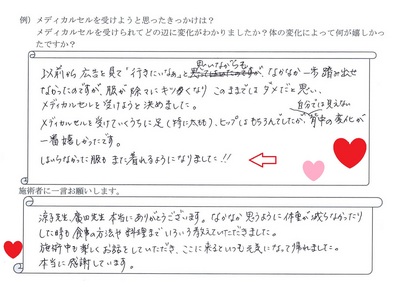 例）メディカルセルを受けようと思ったきっかけは？
メディカルセルを受けられてどの辺に変化がわかりましたか？体の変化によって何が嬉しかったですか？
以前から広告を見て「行きたいなぁ」と思いながらも なかなか一歩踏み出せ
なかったのですが、服が除々にキツくなり このままではダメだと思い、
メディカルセルを受けようと決めました。
メディカルセルを受けていくうちに足（特に太もも）、ヒップはもちろんでしたが、自分では見えない背中の変化が
一番嬉しかったです。
はいらなかった服も また着れるようになりました!!
施術者に一言お願いします。
先生、廣田先生 本当にありがとうございます。なかなか思うように体重が減らなかったり
した時も食事の方法や料理までいろいろ教えていただきました。
施術中も楽しくお話をしていただき、ここに来るといつも元気になって帰れました。
本当に感謝しています。